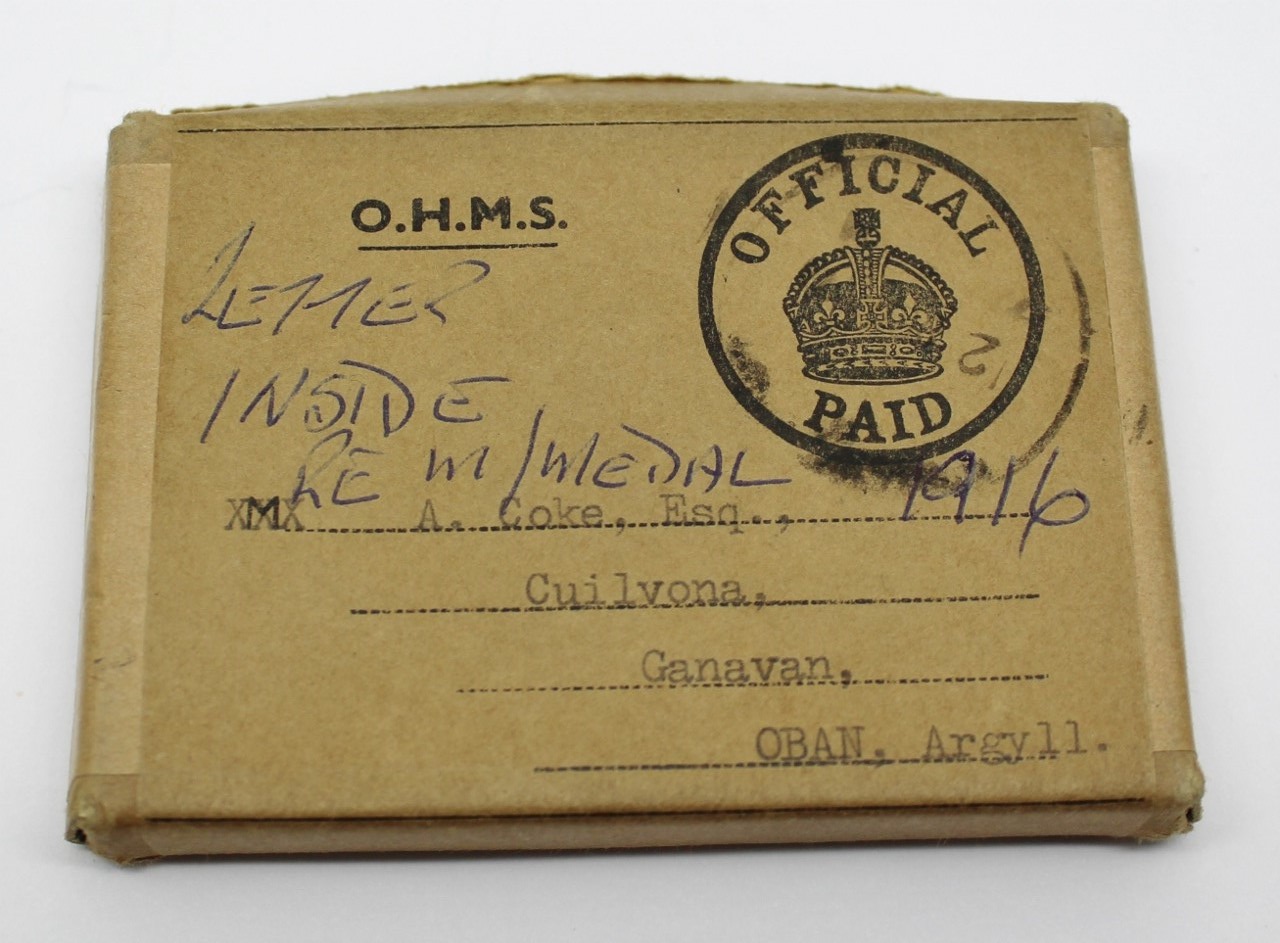 O.H.M.S.
OFFICIAL
PAID
LETTER
INSIDE
RE M/MEDAL 1916
A. Coke, Esq.,
Cuilvona,
Ganavan,
OBAN, Argyll.